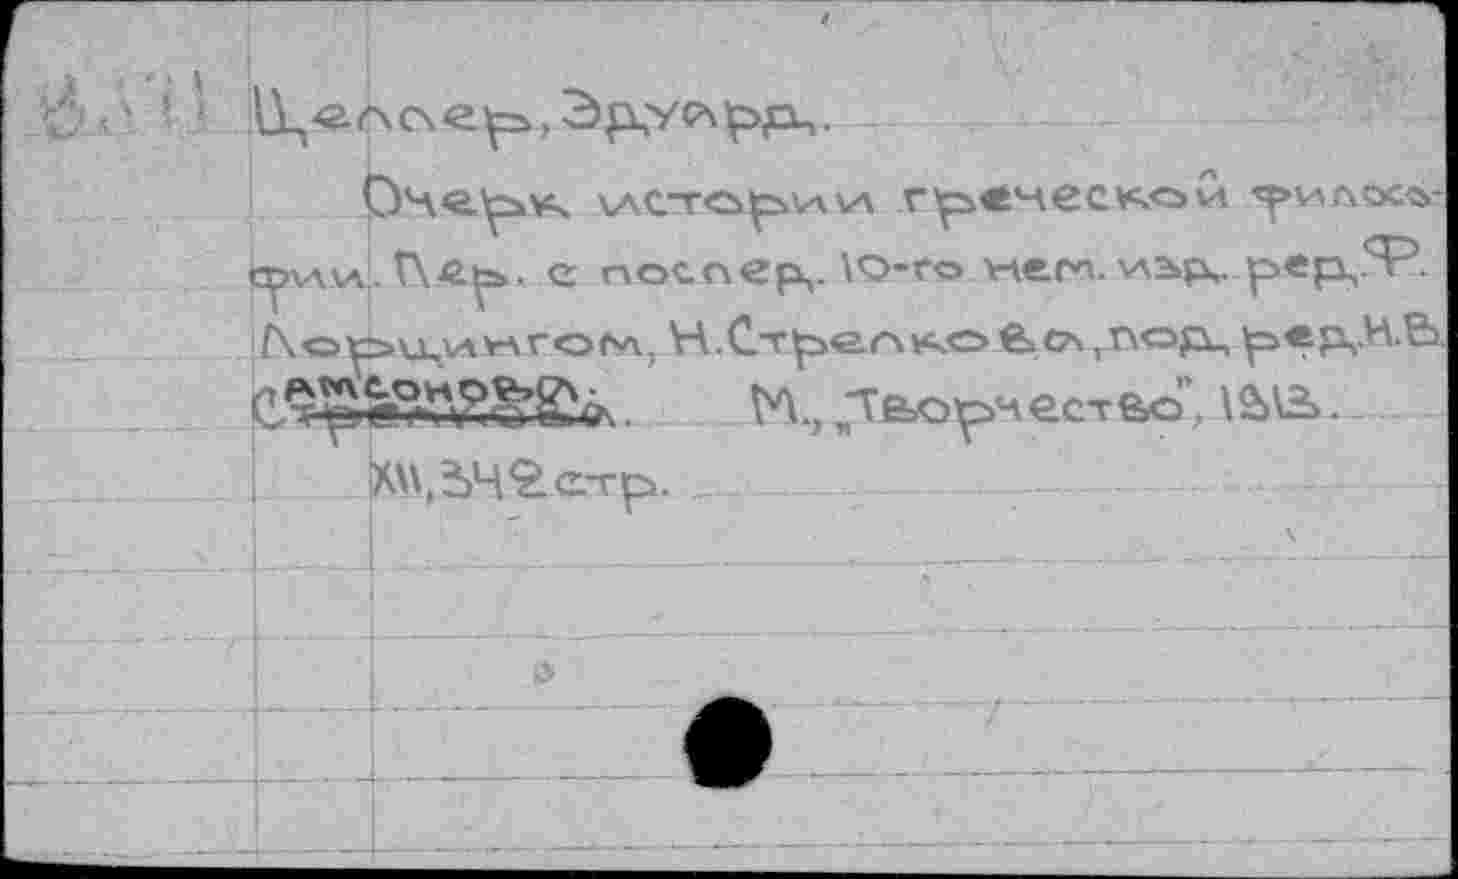 Целлер, Эдуард.
Очерк истории греческой филосо-
фии. Пер. с послед. 10-го нем. изд. ред. Ф.
Лорцингом, Н.Стрелкова, под ред. Н.В.
Самсонова. М., „Творчество", 1913.
XII, 342 стр.